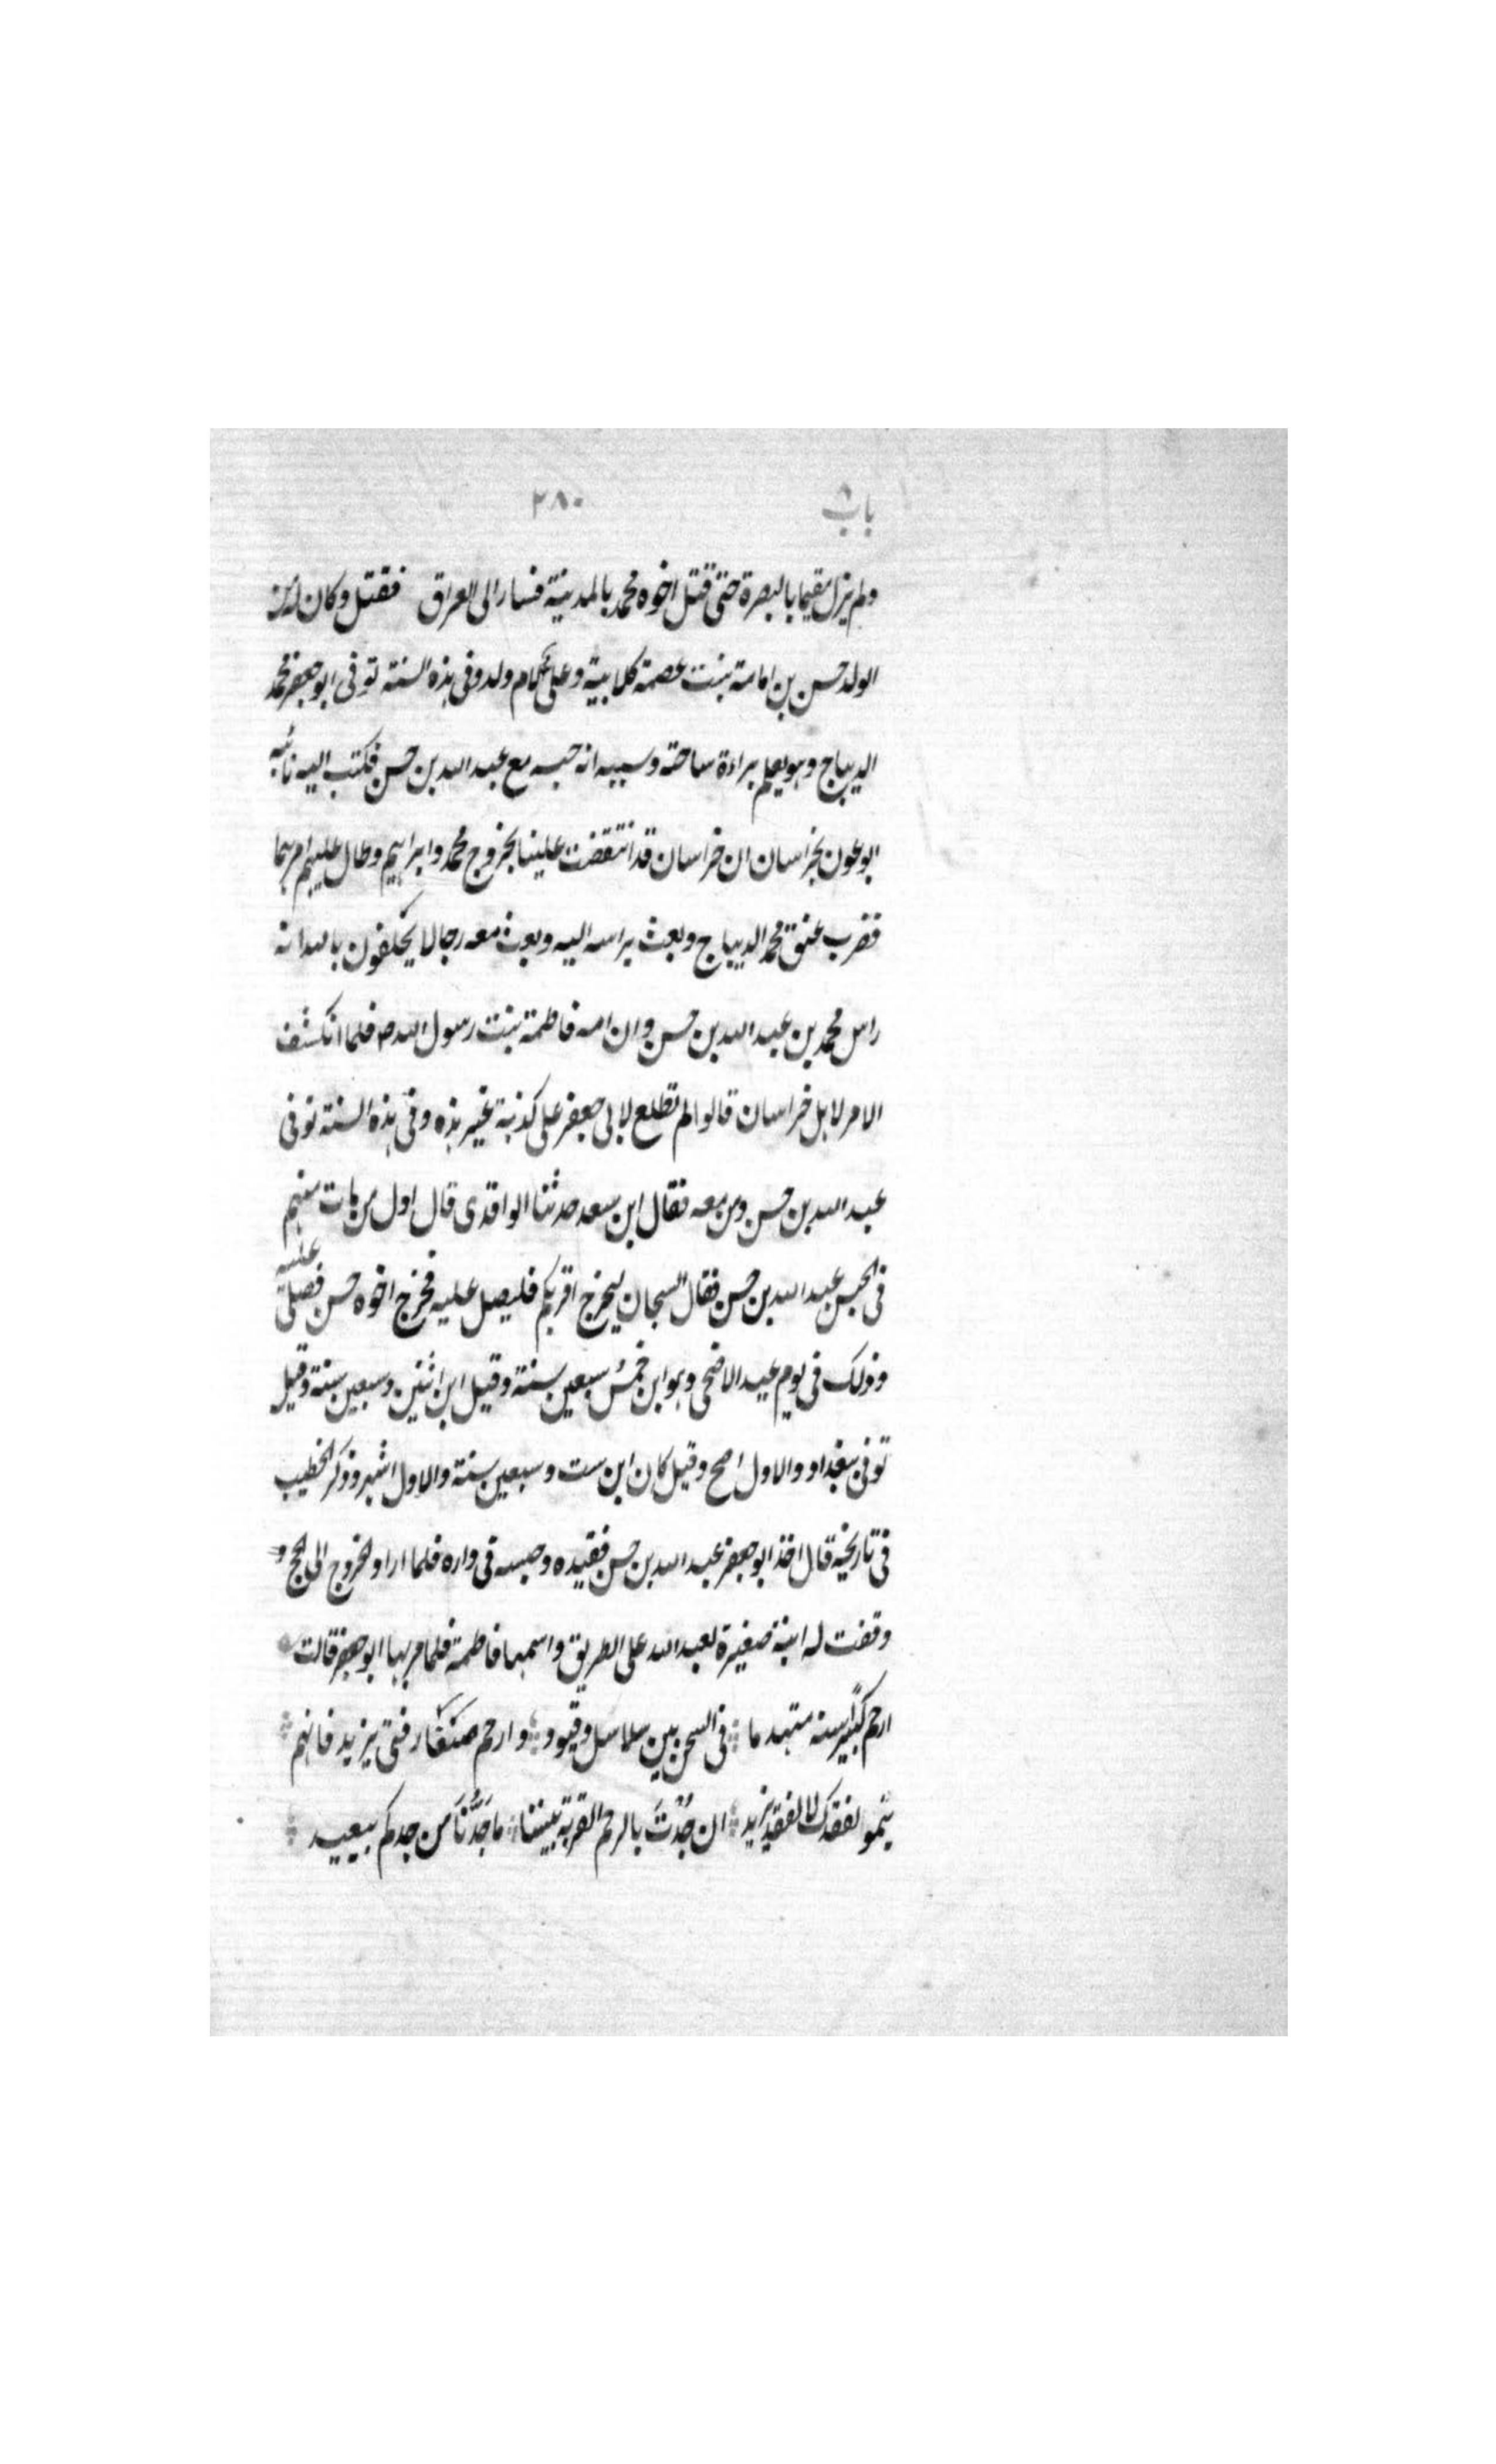 باب ٨ ٢٨٠
ولم يزل مقيما بالبصرة حتى قتل اخوه محمد بالمدينة فسار الى العراق فقتل وكان له من
الولد حسن بن امامة بنت عصمة كلابية وعلى لام ولد وفى هذه السنة توفى ابو جعفر محمد
الديباج وهو يعلم براءة ساحته وسببه انه حبسه مع عبد الله بن حسن فكتب اليه نائبه
ابو عون بخراسان ان خراسان قد انتقضت علينا بخروج محمد وابراهيم وطال عليهم امرهما
فضرب عنق محمد الديباج وبعث براسه اليه وبعث معه رجالا يحلفون بالله انه
راس محمد بن عبد الله بن حسن وان امه فاطمة بنت رسول الله ص فلما انكشف
الامر لاهل خراسان قالوا لم نطلع لابى جعفر على كذبة غير هذه وفى هذه السنة توفى
عبد الله بن حسن ومن معه فقال ابن سعد حدثنا الواقدى قال اول من مات منهم
فى الحبس عبد الله بن حسن فقال السجان ليخرج اقربكم فليصل عليه فخرج اخوه حسن فصلى عليه
وذلك فى يوم عيد الاضحى وهو ابن خمس سبعين سنة وقيل ابن اثنين وسبعين سنة وقيل
توفى ببغداد والاول اصح وقيل كان ابن ست وسبعين سنة والاول اشهر وذكر الخطيب
فى تاريخه قال اخذ ابو جعفر عبد الله بن حسن فقيده وحبسه فى داره فلما اراد الخروج الى الحج و
وقفت له ابنة صغيرة لعبد الله على الطريق واسمها فاطمة فلما مر بها ابو جعفر قالت
ارحم كبيرا سنه متهدما فى السجن بين سلاسل وقيود وارحم صغار فتى يزيد فانهم
يتموا لفقدك لا لفقد يزيد ان جُدْتَ بالرحم القربة بيننا ما جَدُّنَا مِن جدكم ببعيد